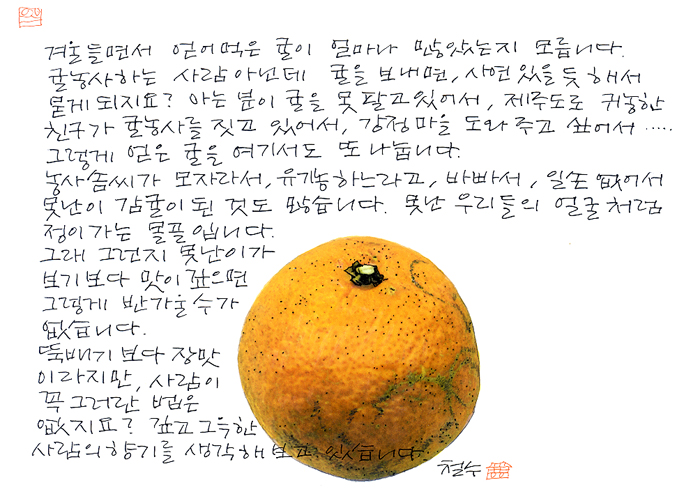 겨울 들면서 얻어먹은 귤이 얼마나 많았는지 모릅니다.
귤농사하는 사람 아닌데 귤을 보내면, 사연 있을 듯 해서
묻게 되지요? 아는 분이 귤을 못 팔고 있어서, 제주도로 귀농한
친구가 귤농사를 짓고 있어서, 강정마을 도와주고 싶어서 .....
그렇게 얻은 귤을 여기서도 또 나눕니다.
농사솜씨가 모자라서, 유기농하느라고, 바빠서, 일손 없어서
못난이 감귤이 된 것도 많습니다. 못난 우리들의 얼굴처럼
정이가는 물픔입니다.
그래 그런지 못난이가
보기보다 맛이 깊으면
그렇게 반가울 수가
없습니다.
뚝배기보다 장맛
이라지만, 사람이
꼭 그러란 법은
없지요? 깊고 그득한
사람의 향기를 생각해보고 있습니다
철수